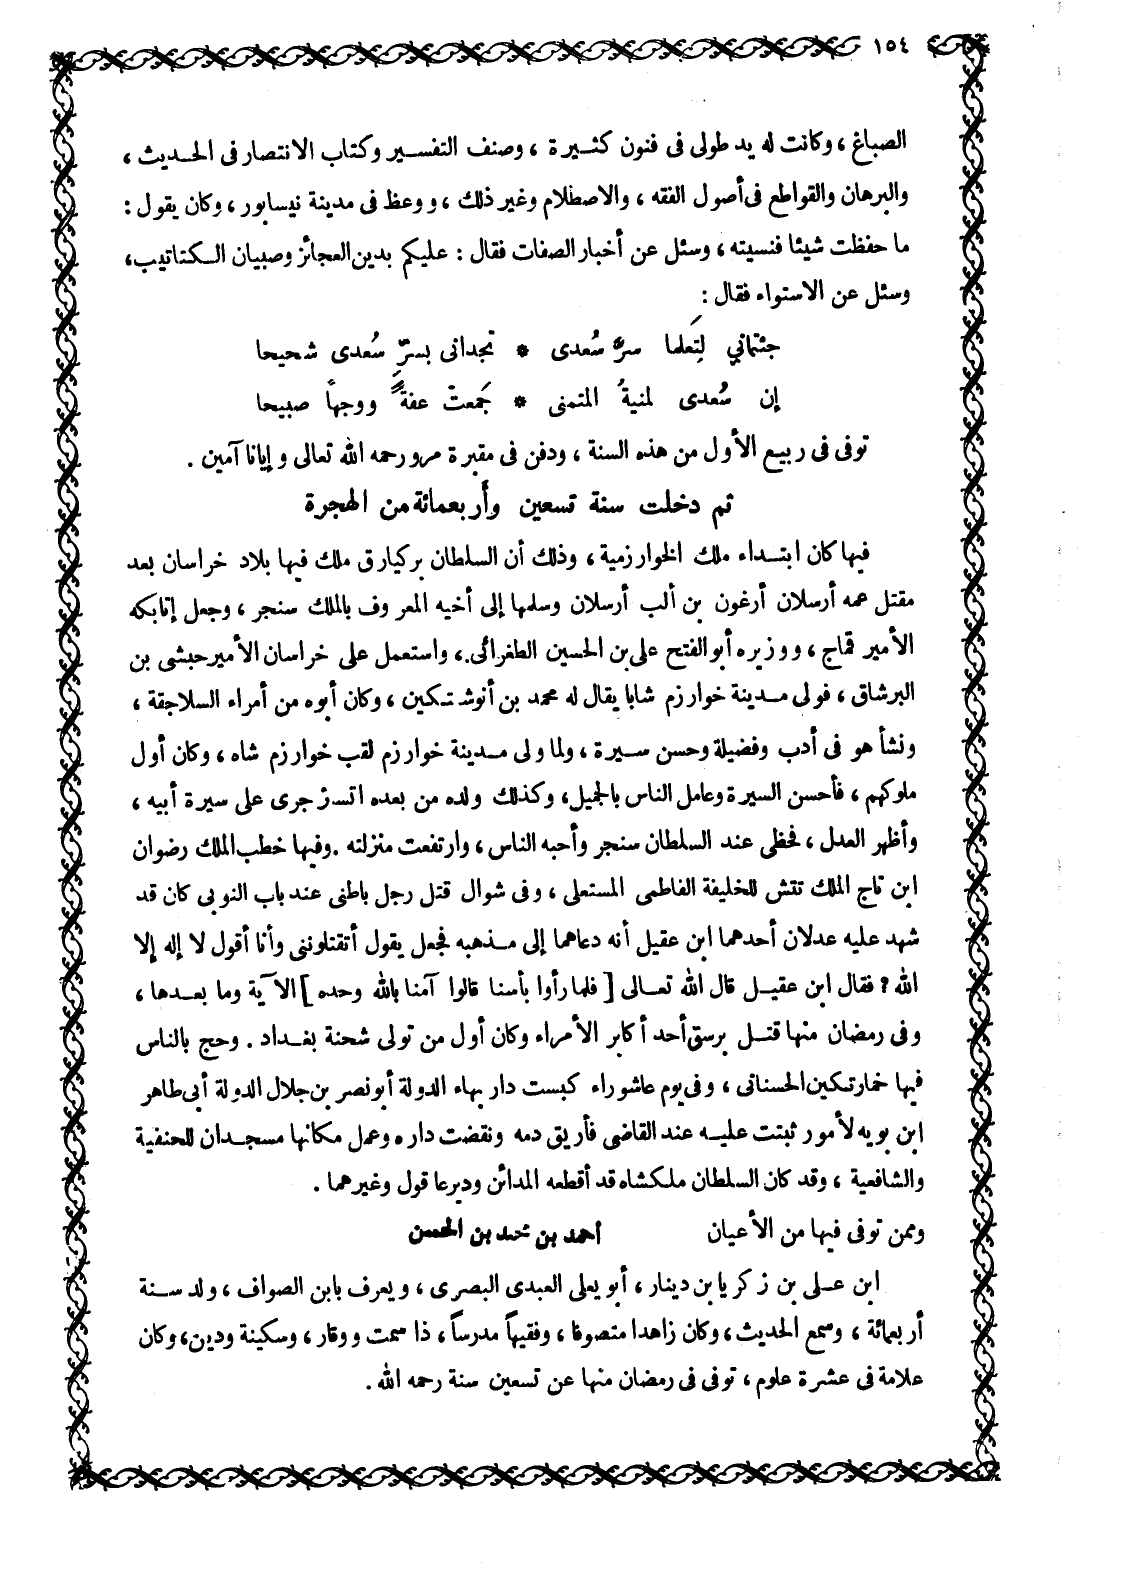 ١٥٤
الصباغ ، وكانت له يد طولى فى فنون كثيرة ، وصنف التفسير وكتاب الانتصار فى الحديث ،
والبرهان والقواطع فى أصول الفقه ، والاصطلام وغير ذلك ، ووعظ فى مدينة نيسابور ، وكان يقول :
ما حفظت شيئا فنسيته ، وسئل عن أخبار الصفات فقال : عليكم بدين العجائز وصبيان الكتاتيب ،
وسئل عن الاستواء فقال :
جئتمانى لِتَعلما سرَّ سُعدى * تجدانى بسرّ سُعدى شحيحا
إن سُعدى لمنيةُ المتمنى * جَمعتْ عفةً ووجهاً صبيحا
توفى فى ربيع الأول من هذه السنة ، ودفن فى مقبرة مرو رحمه الله تعالى وإيانا آمين .
ثم دخلت سنة تسعين وأربعمائة من الهجرة
فيها كان ابتداء ملك الخوارزمية ، وذلك أن السلطان بركيارق ملك فيها بلاد خراسان بعد
مقتل عمه أرسلان أرغون بن ألب أرسلان وسلمها إلى أخيه المعروف بالملك سنجر ، وجعل إتابكه
الأمير قماج ، ووزيره أبو الفتح على بن الحسين الطغرائى ، واستعمل على خراسان الأمير حبشى بن
البرشاق ، فولى مدينة خوارزم شابا يقال له محمد بن أنوشتكين ، وكان أبوه من أمراء السلاجقة ،
ونشأ هو فى أدب وفضيلة وحسن سيرة ، ولما ولى مدينة خوارزم لقب خوارزم شاه ، وكان أول
ملوكهم ، فأحسن السيرة وعامل الناس بالجميل ، وكذلك ولده من بعده اتسز جرى على سيرة أبيه ،
وأظهر العدل ، فحظى عند السلطان سنجر وأحبه الناس ، وارتفعت منزلته . وفيها خطب الملك رضوان
ابن تاج الملك تتش للخليفة الفاطمى المستعلى ، وفى شوال قتل رجل باطنى عند باب النوبى كان قد
شهد عليه عدلان أحدهما ابن عقيل أنه دعاهما إلى مذهبه فجعل يقول أتقتلوننى وأنا أقول لا إله إلا
الله ? فقال ابن عقيل قال الله تعالى [ فلما رأوا بأسنا قالوا آمنا بالله وحده ] الآية وما بعدها ،
وفى رمضان منها قتل برسق أحد أكابر الأمراء وكان أول من تولى شحنة بغداد . وحج بالناس
فيها خمارتكين الحسنانى ، وفى يوم عاشوراء كبست دار بهاء الدولة أبو نصر بن جلال الدولة أبى طاهر
ابن بويه لأمور ثبتت عليه عند القاضى فأريق دمه ونقضت داره وعمل مكانها مسجدان للحنفية
والشافعية ، وقد كان السلطان ملكشاه قد أقطعه المدائن وديرعاقول وغيرهما .
وممن توفى فيها من الأعيان أحمد بن محمد بن الحسن
ابن على بن زكريا بن دينار ، أبو يعلى العبدى البصرى ، ويعرف بابن الصواف ، ولد سنة
أربعمائة ، وسمع الحديث ، وكان زاهدا متصوفا ، وفقيهاً مدرساً ، ذا سمت ووقار ، وسكينة ودين ، وكان
علامة فى عشرة علوم ، توفى فى رمضان منها عن تسعين سنة رحمه الله .